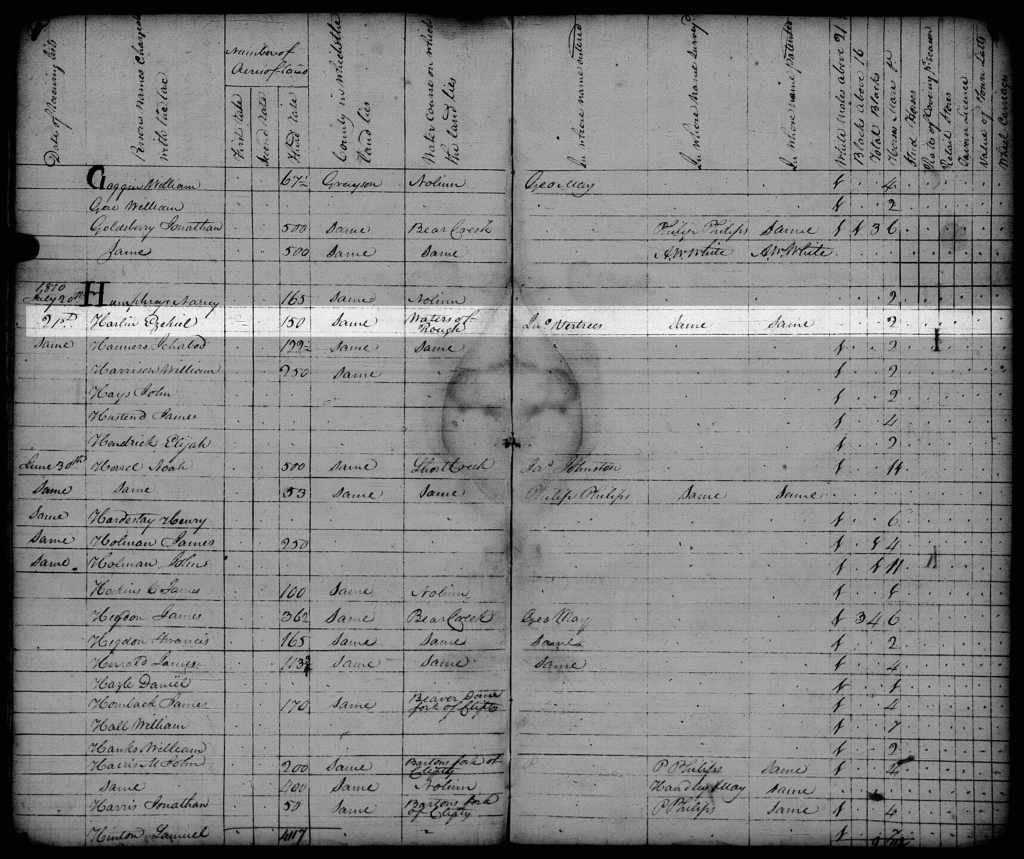 Date of receiving lists Persons names Chargeable with the tax Number of Acres of land First rate Second rate Third rate County in which the land lies Water course on which the land lies In whose name entered In whose name Survey'd In whose name patented White males above 21 Blacks above 16 Total Blacks Horses Mares &c Stud Horses Rate of Covering pr season Retail Stores Tavern Licence Value of Town Lotts Wheel Carriages
William 67 1/2 Grayson Nolinn Geo May 1 4
Gore William 1 2
Goldsberry Jonathan 500 Same Bear Creek Philip Philips Same 1 1 3 6
Same 500 Same Same A.W. White A.W. White
1810
July 20th Humphreys Nancy 165 Same Nolinn 2
21st Harlin Ezekiel 150 Same Waters of Rough Jno Vertrees Same Same 2
Same Ichabod Same Same 1 2
Harrison William 250 Same 1 2
Hays John 1 2
James 1 4
Hendrick Elijah 1 2
June 30th Noah 500 Same Short Creek Jas Johnston 1
Same Same 53 Same Same Philip Philips Same Same
Same Hardestay Henry 1 6
Same Holman James 250 1 4
Same Holman John 1 11
James 100 Same Nolinn 1 1
Higdon James 362 Same Bear Creek Geo May 1 3 4 6
Higdon Francis 165 Same Same Same 1 2
James Same Same Same 1 4
Hazle Daniel 1 1
Hornback James 170 Same Beaver Dam fork of Clifty 1 4
Hall William 1 7
Hanks William 1 2
Harris M John 200 Same Bartons fork of Clifty P Philips Same 1 4
Same 400 Same Nolinn May Same
Harris Jonathan 50 Same Bartons fork of Clifty P Philips Same 1 4
Hinton Samuel 1